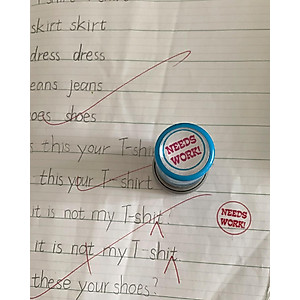 skirt skirt
dress dress
eans jeans
oes shoes
s this your T-shirt
this your T shirt
NEEDS
WORK!
it is not my T-shit.
NEEDS
WORK!
it is not my T-shit
these your shoes?